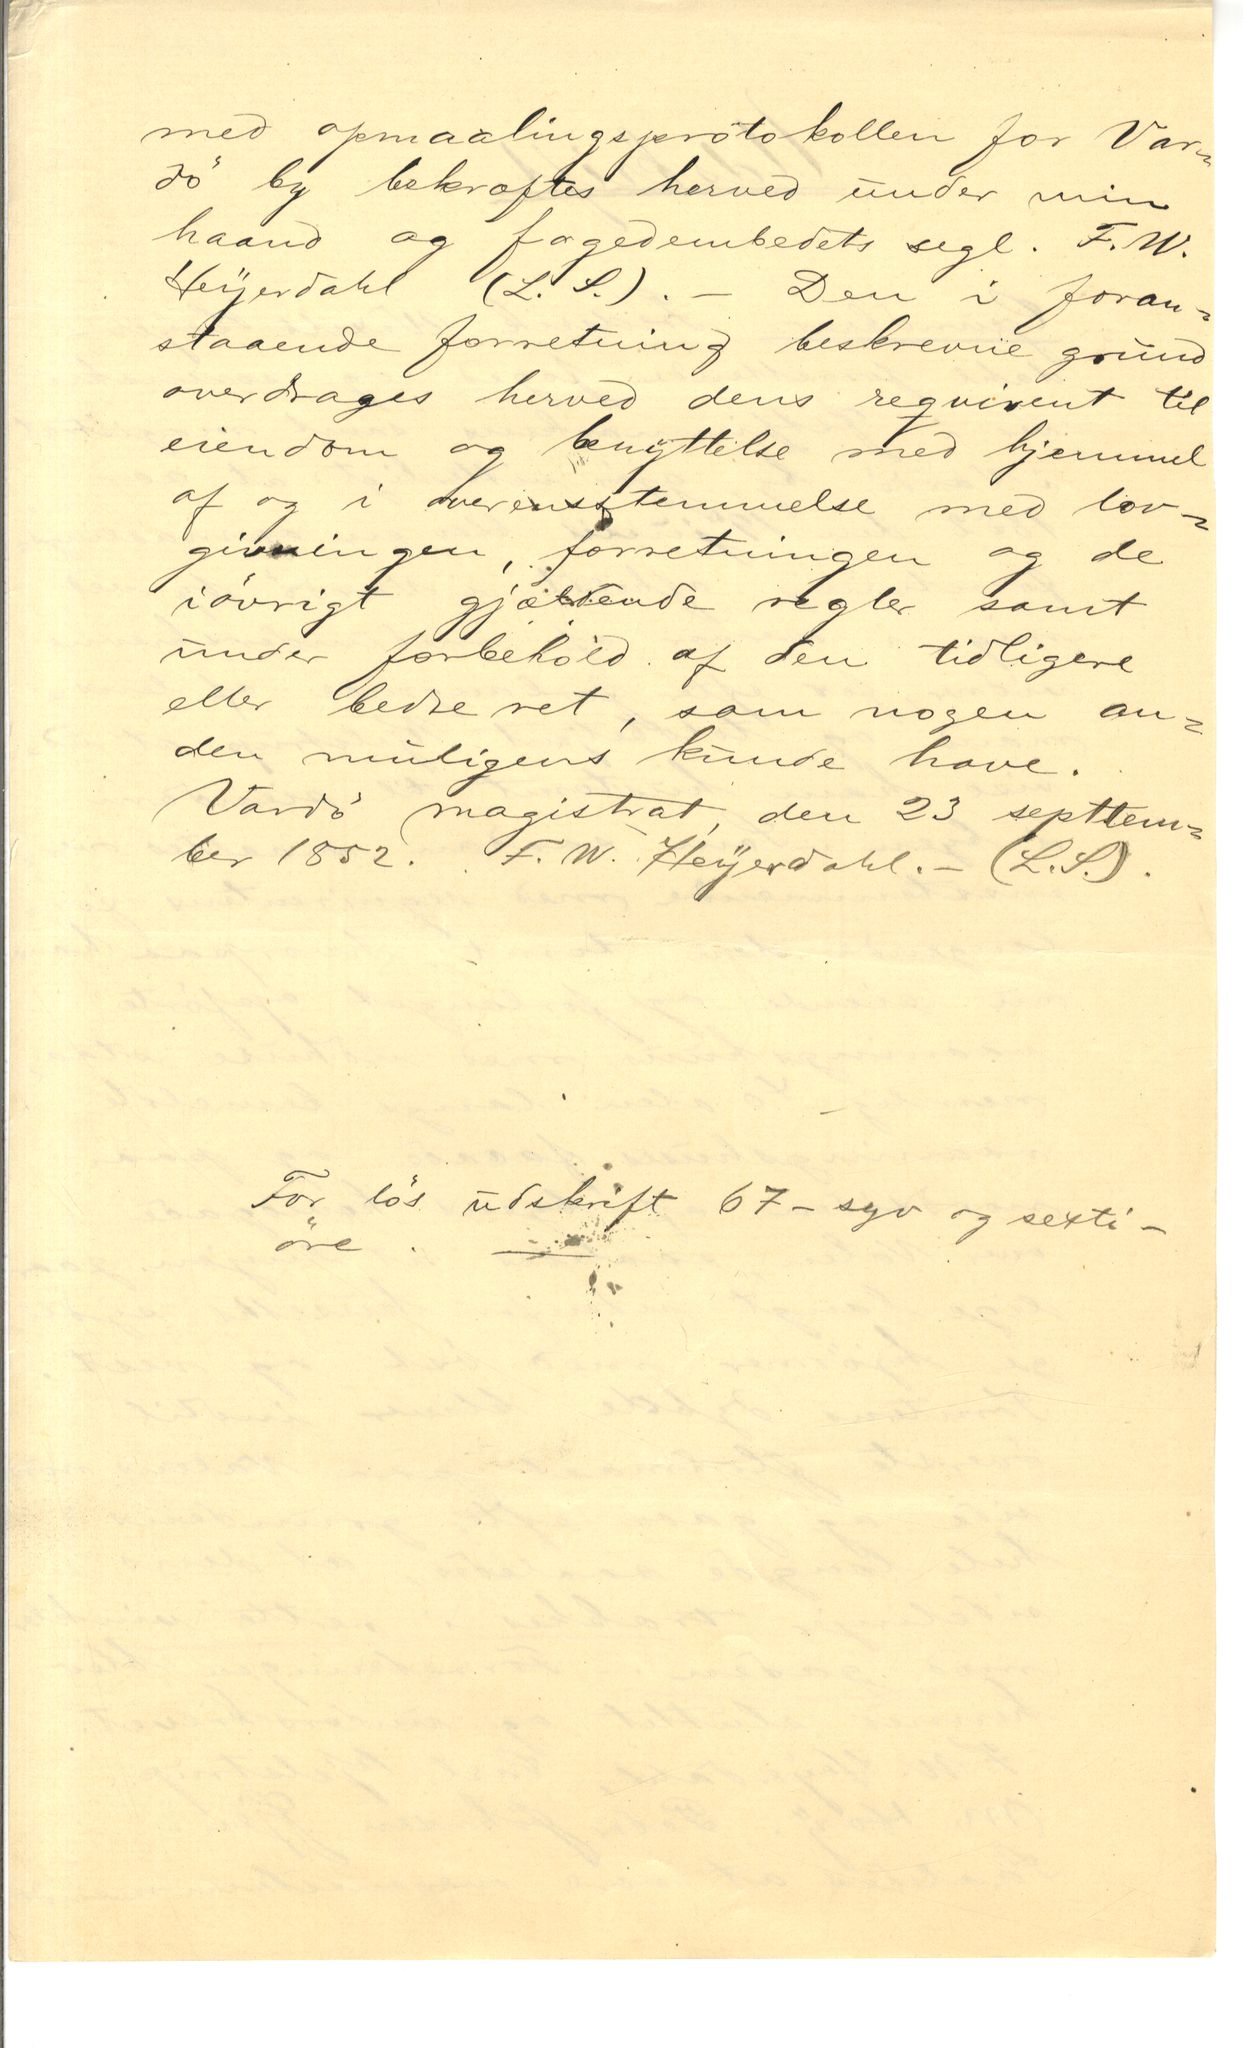 med opmaalingsprotokollen for Var-
dö by bekræftes herved under min
haand og fogedembedets segl. F. W.
Heÿerdahl (L. S.). — Den i foran-
staaende forretning beskrevne grund
overdrages herved dens reqvirent til
eiendom og benyttelse med hjemmel
af og i overensstemmelse med lov-
givningen, forretningen og de
iövrigt gjældende regler samt
under forbehold af den tidligere
eller bedre ret, som nogen an-
den muligens kunde have.
Vardö magistrat, den 23 septtem-
ber 1852. F. W. Heÿerdahl. — (L. S.).
For lös udskrift 67 — syv og sexti —
öre.